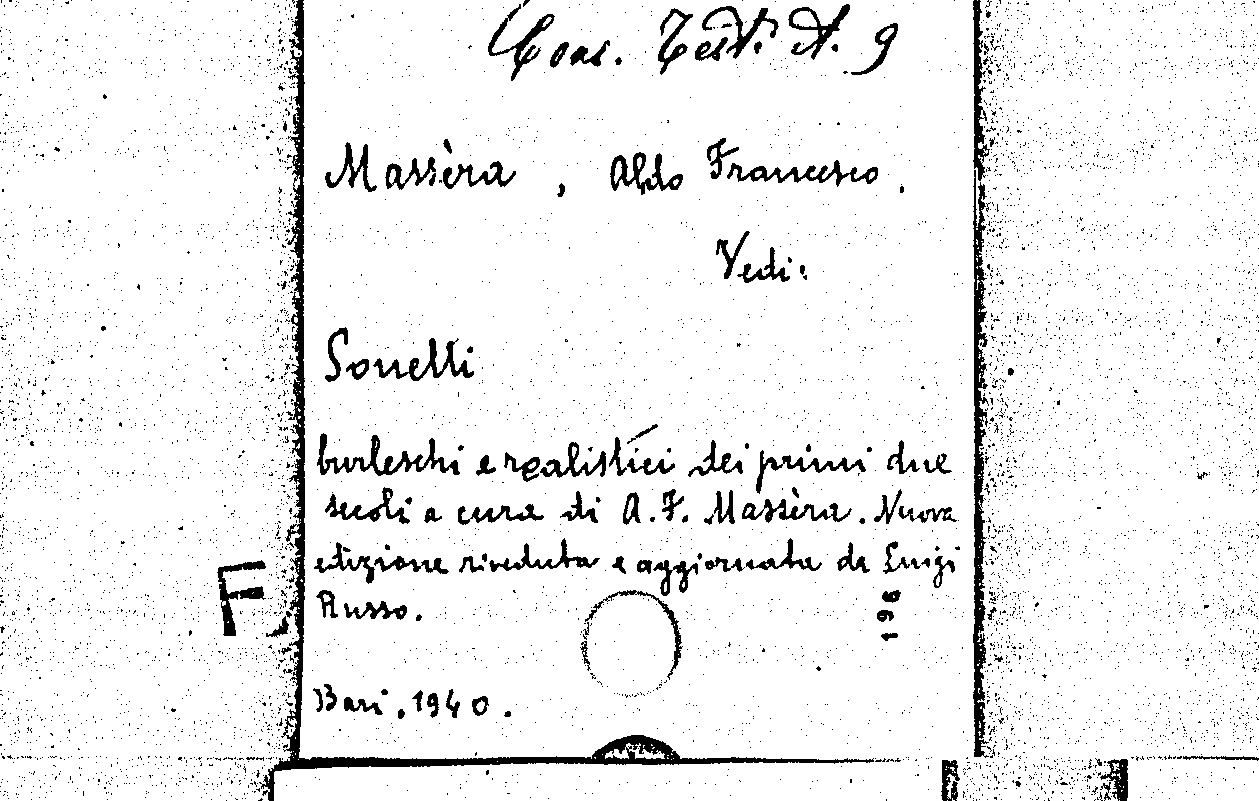 Cons. Test. A. 9
Massèra, Aldo Francesco.
Vedi:
Sonetti
burleschi e realistici dei primi due
secoli a cura di A. F. Massèra. Nuova
edizione riveduta e aggiornata da Luigi
Russo.
F
196
Bari, 1940.